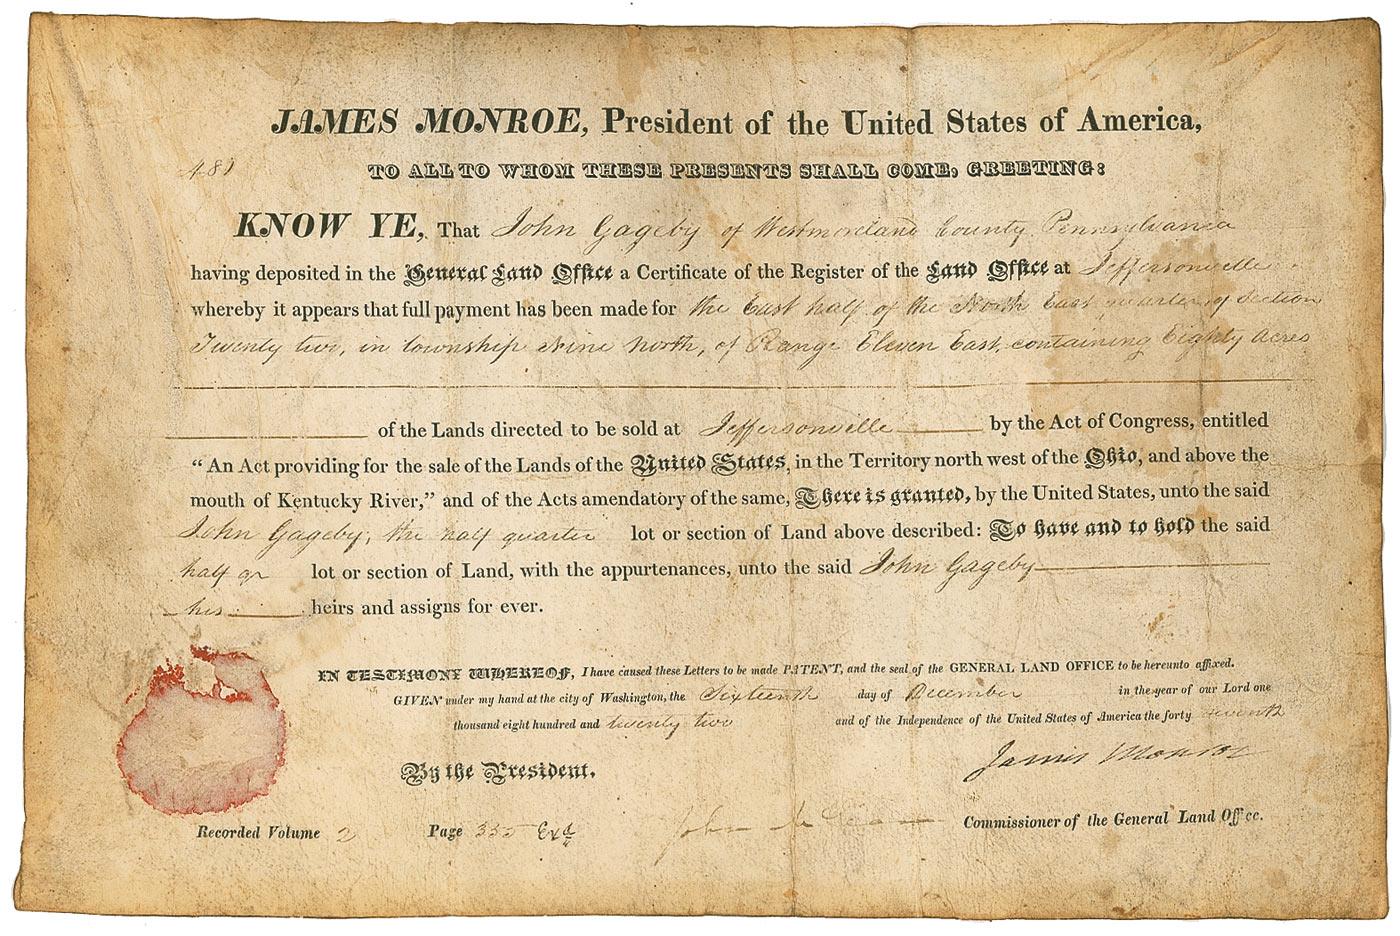 JAMES MONROE, President of the United States of America,
481
TO ALL TO WHOM THESE PRESENTS SHALL COME, GREETING:
KNOW YE, That John Gageby of Westmoreland County Pennsylvania
having deposited in the General Land Office a Certificate of the Register of the Land Office at Jeffersonville
whereby it appears that full payment has been made for the East half of the North East quarter of Section
Twenty two, in township Nine north, of Range Eleven East, containing Eighty acres
of the Lands directed to be sold at Jeffersonville by the Act of Congress, entitled
“An Act providing for the sale of the Lands of the United States, in the Territory north west of the Ohio, and above the
mouth of Kentucky River,” and of the Acts amendatory of the same, There is granted, by the United States, unto the said
John Gageby, the half quarter lot or section of Land above described: To have and to hold the said
half qr lot or section of Land, with the appurtenances, unto the said John Gageby
his heirs and assigns for ever.
IN TESTIMONY WHEREOF, I have caused these Letters to be made PATENT, and the seal of the GENERAL LAND OFFICE to be hereunto affixed.
GIVEN under my hand at the city of Washington, the Sixteenth day of December in the year of our Lord one
thousand eight hundred and twenty two and of the Independence of the United States of America the forty seventh
James Monroe
By the President.
Recorded Volume 2 Page 335 John Commissioner of the General Land Office.